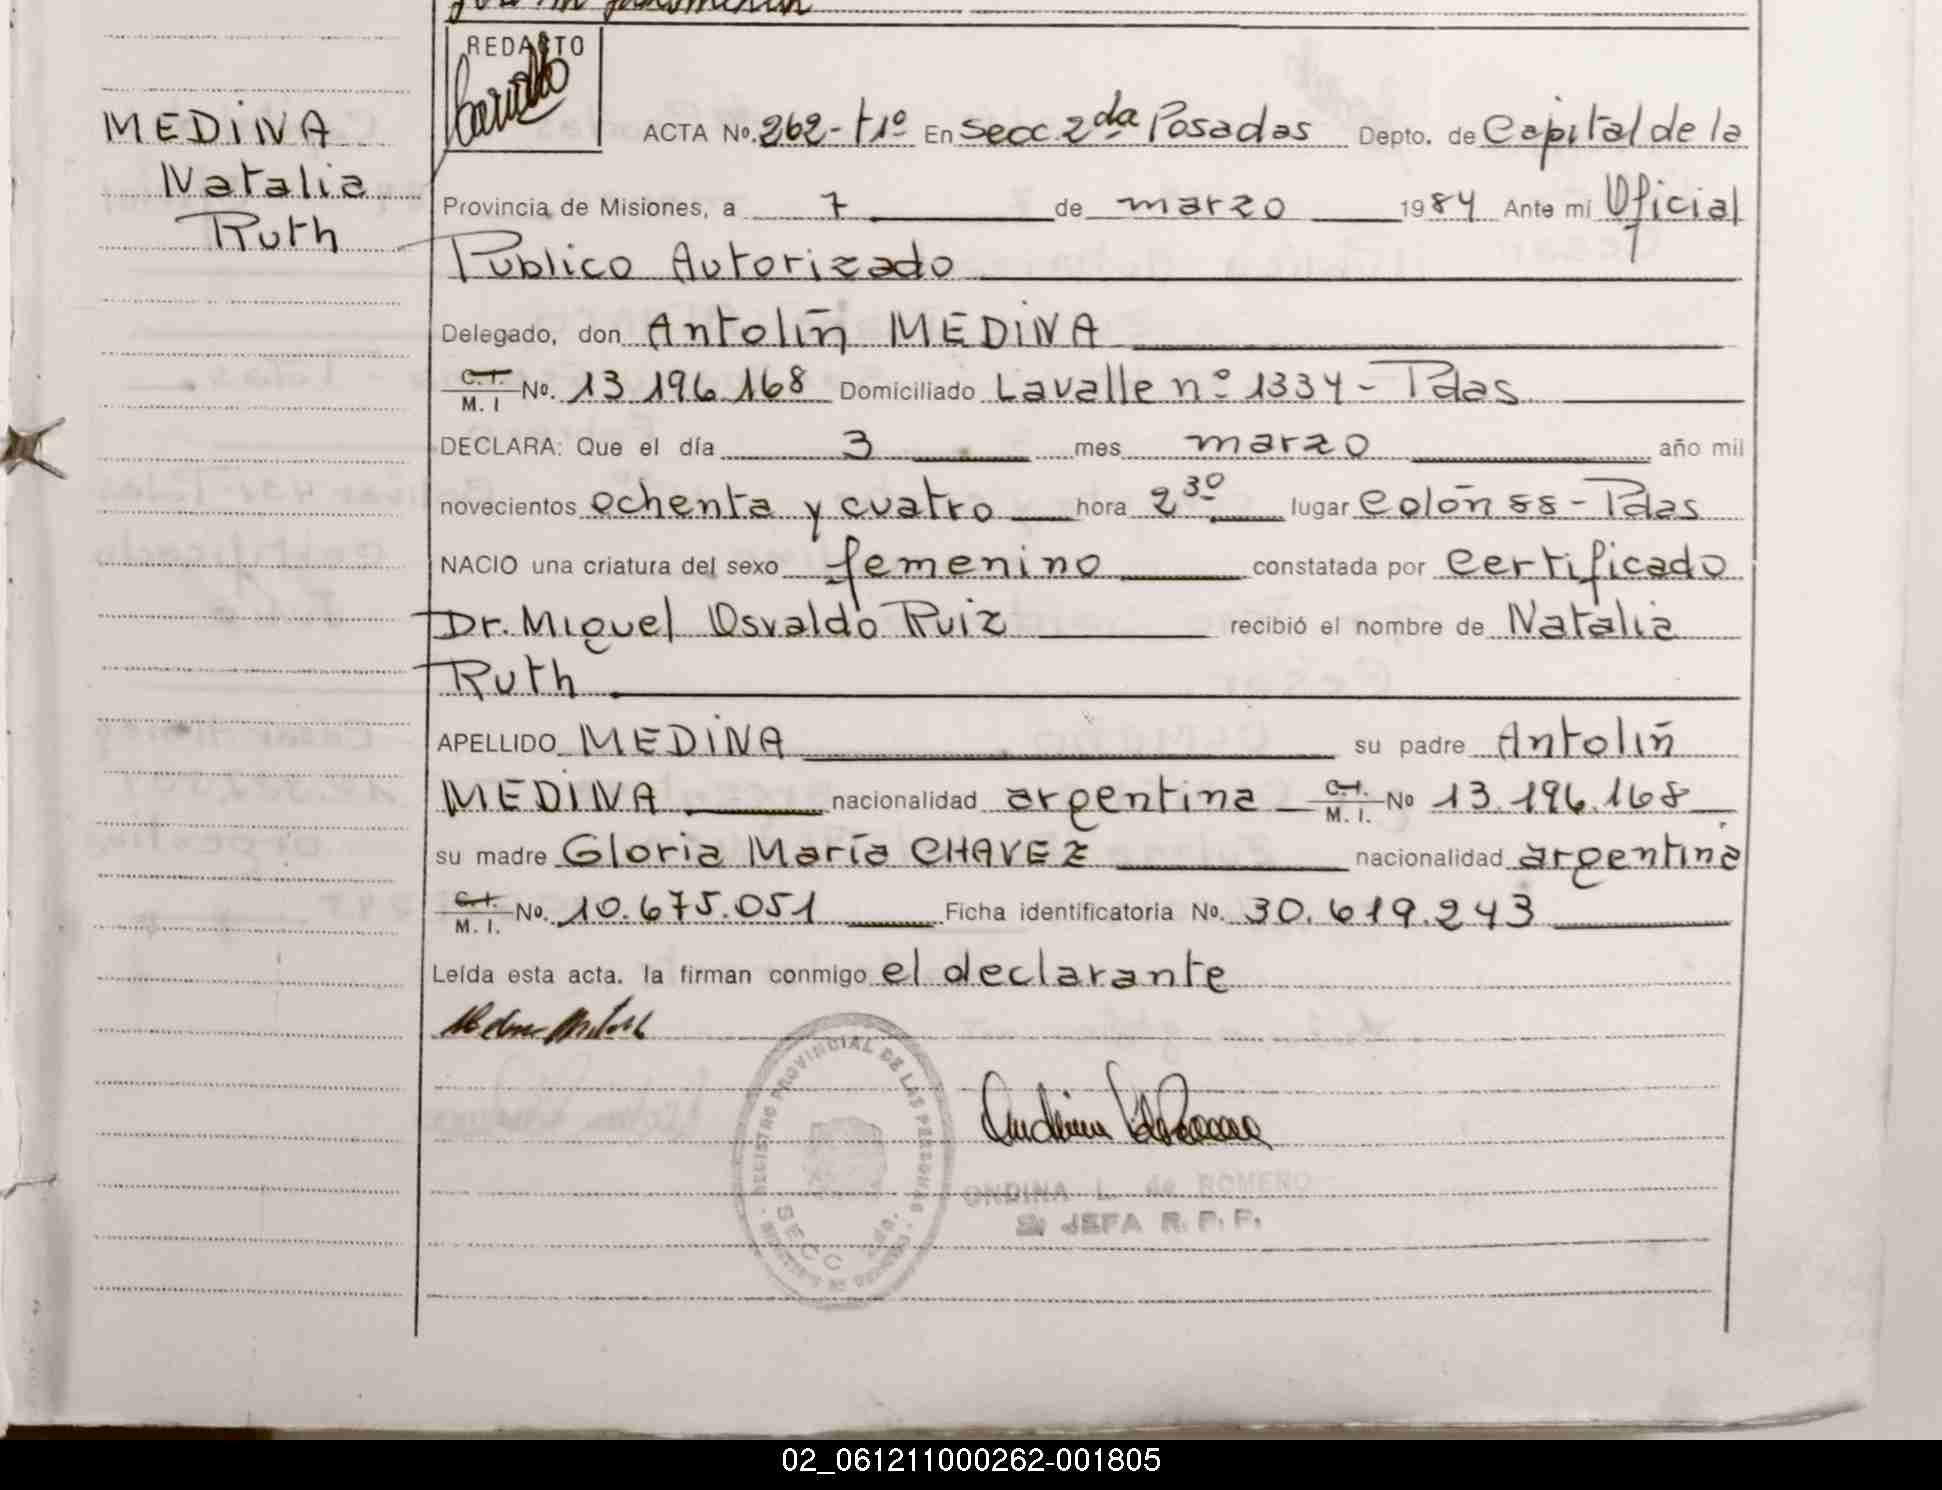 REDACTO
MEDINA
Natalia
Ruth
ACTA No. 262-t1º En Secc 2da Posadas Depto. de Capital de la
Provincia de Misiones, a 7 de marzo 1984 Ante mi Oficial
Público Autorizado
Delegado, don Antolín MEDINA
C.I. M. I No. 13.196.168 Domiciliado Lavalle nº 1334 - Pdas
DECLARA: Que el día 3 mes marzo año mil
novecientos ochenta y cuatro hora 2 30 lugar Colón 88 - Pdas
NACIO una criatura del sexo femenino constatada por Certificado
Dr. Miguel Osvaldo Ruiz recibió el nombre de Natalia
Ruth
APELLIDO MEDINA su padre Antolín
MEDINA nacionalidad argentina C.I. M. I. No 13.196.168
su madre Gloria María CHAVEZ nacionalidad argentina
C.I. M. I. No. 10.675.051 Ficha identificatoria No. 30.619.243
Leída esta acta. la firman conmigo el declarante
REGISTRO PROVINCIAL DE LAS PERSONAS
SECC 2da.
ONDINA L. de ROMERO
JEFA R. P. P.
02_061211000262-001805